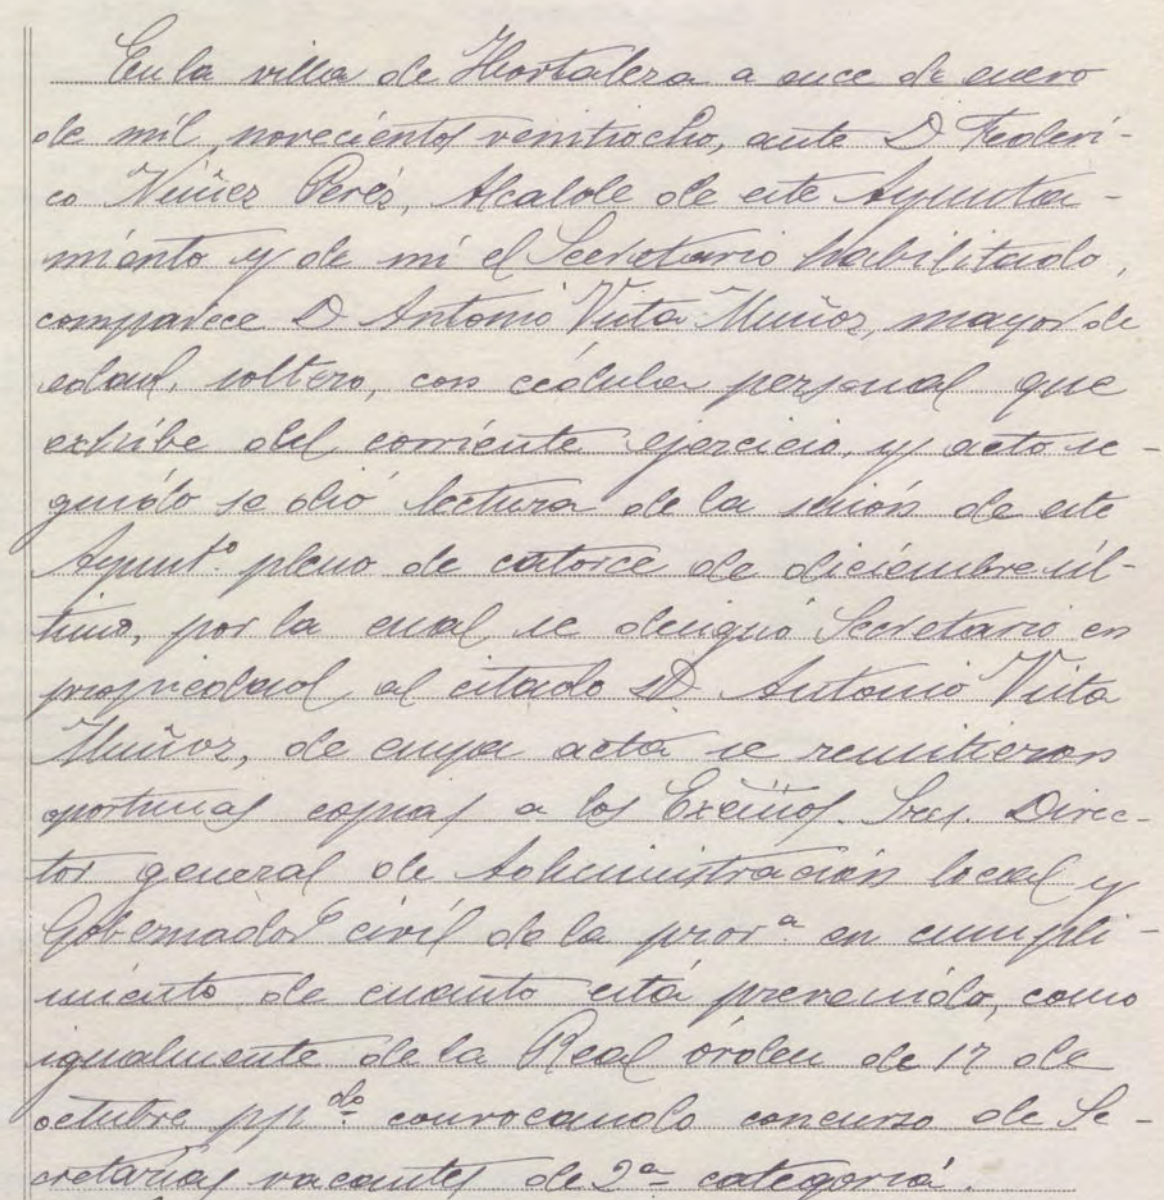 En la villa de Hortaleza a once de enero
de mil novecientos veintiocho, ante D Federi-
co Núñez Peréz, Alcalde de este Ayunta-
miento y de mi el Secretario habilitado,
comparece D Antonio Viita Muñoz, mayor de
edad, soltero, con cédula personal que
exhibe del corriente ejercicio, y acto se-
guido se dió lectura de la sesión de este
Ayuntº. pleno de catorce de diciembre úl-
timo, por la cual se designó Secretario en
propiedad al citado D Antonio Viita
Muñoz, de cuya acta se remitieron
oportunas copias a los Excmos. Sres. Direc-
tor general de Administración local y
Gobernador civil de la provª. en cumpli-
miento de cuanto está prevenido, como
igualmente de la Real órden de 17 de
octubre ppdo. convocando concurso de Se-
cretarías vacantes de 2ª categoría.